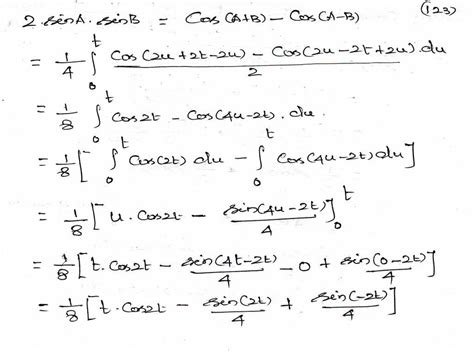 2 sinA. sinB = Cos(A+B) - Cos(A-B) (123)
= 1/4 ∫₀ᵗ (Cos(2u+2t-2u) - Cos(2u-2t+2u).du)/2
= 1/8 ∫₀ᵗ Cos2t - Cos(4u-2t).du.
= 1/8 [ ∫₀ᵗ Cos(2t) du - ∫₀ᵗ Cos(4u-2t)du ]
= 1/8 [ u.Cos2t - sin(4u-2t)/4 ]₀ᵗ
= 1/8 [ t.Cos2t - sin(4t-2t)/4 - 0 + sin(0-2t)/4 ]
= 1/8 [ t.Cos2t - sin(2t)/4 + sin(-2t)/4 ]